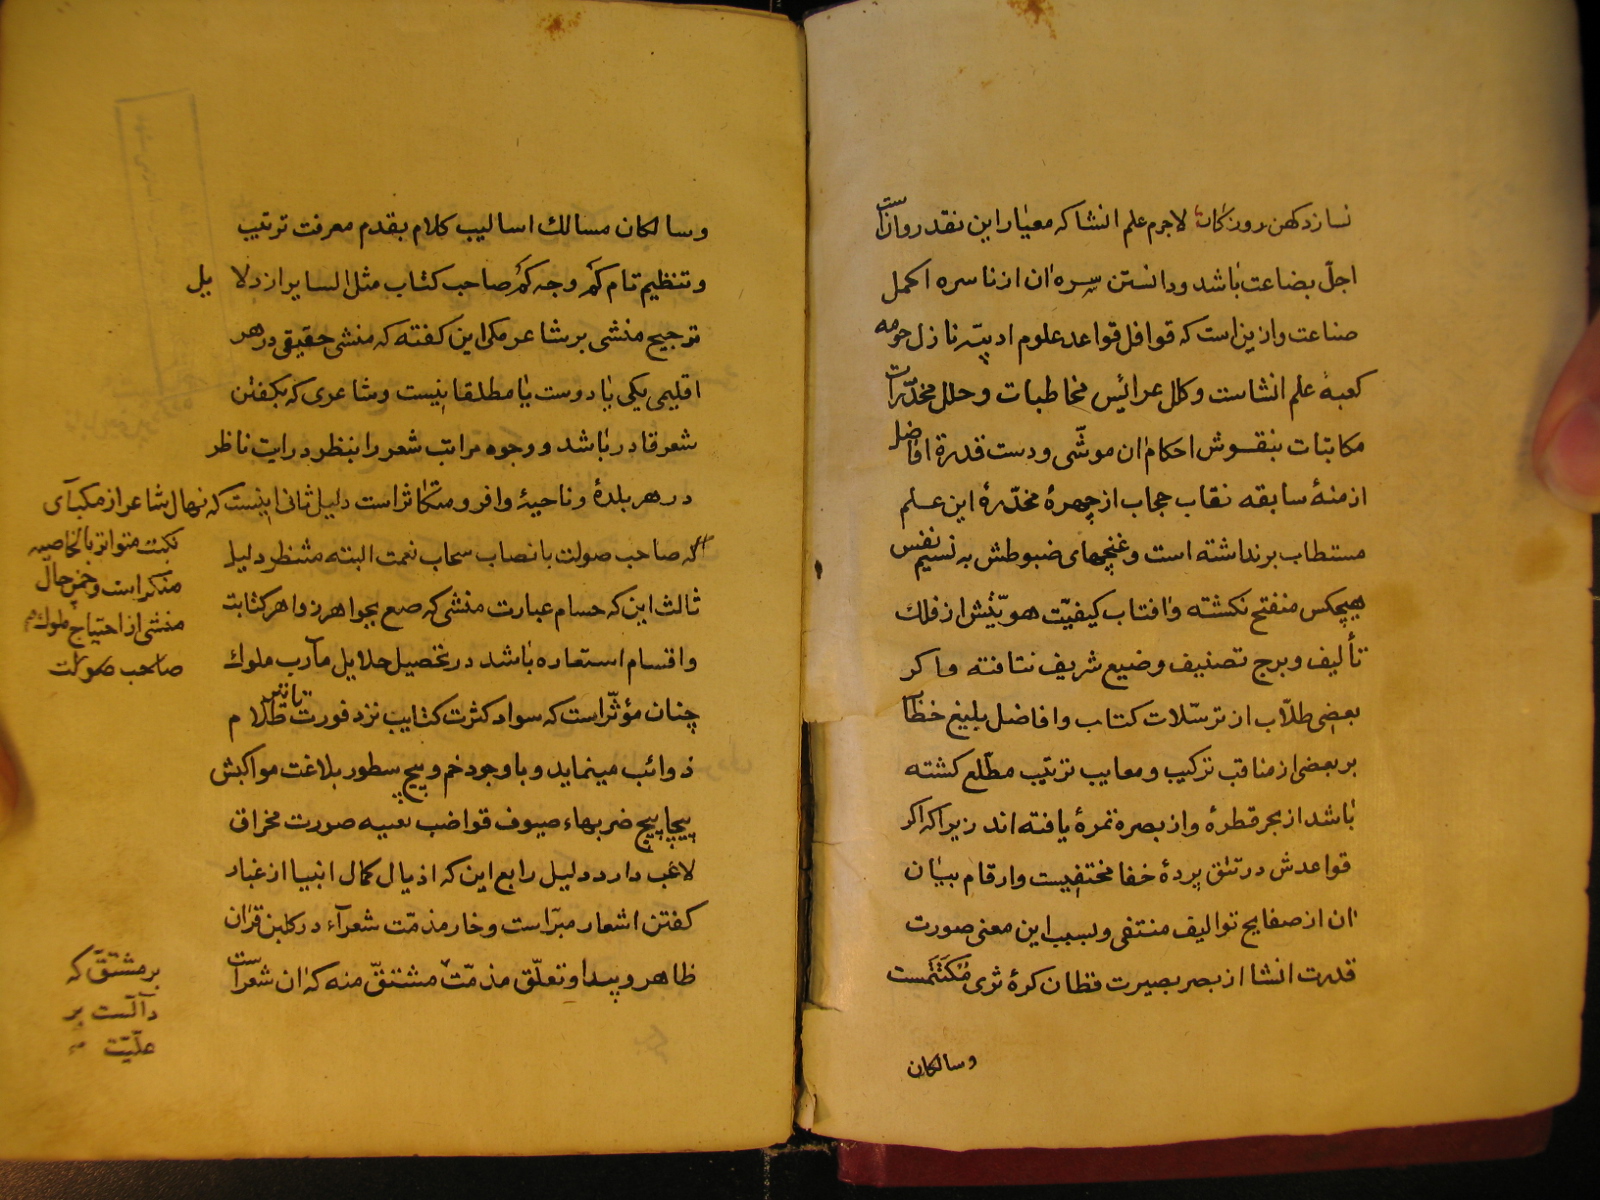 نسازد کهن روزکاران لاجرم علم انشا که معیار این نقد روانست
اجلّ بضاعت باشد ودانستن سره ان از ناسره اکمل
صناعت وازین است که قوافل قواعد علوم ادبیّه نازل حومه
کعبهٔ علم انشاست وکلل عرائس مخاطبات وحلل مخدّرات
مکاتبات بنقوش احکام ان موشّی ودست قدرة افاضل
ازمنهٔ سابقه نقاب حجاب از چهرهٔ مخدّرهٔ این علم
مستطاب برنداشته است وغنچهای ضبوطش به نسیم نفس
هیچکس منفتح نکشته وافتاب کیفیّت هویّتش از فلک
تألیف وبرج تصنیف وضیع شریف نتافته واکر
بعضی طلّاب از ترسّلات کتاب وافاضل بلیغ خطاب
بر بعضی از مناقب ترکیب ومعایب ترتیب مطّلع کشته
باشد از بحر قطرهٔ واز بصره تمرهٔ یافته اند زیرا که اکر
قواعدش در تتق پردهٔ خفا مختفیست وارقام بیان
ان از صفایح توالیف منتفی وبسبب این معنی صورت
قدرت انشا از بصر بصیرت قطان کرهٔ ثری مکتتمست
وسالکان
وسالکان مسالك اسالیب کلام بقدم معرفت ترتیب
وتنظیم تام کم وجه کم صاحب کتاب مثل السایر از دلایل
ترجیح منشی بر شاعر مکر این کفته که منشی حقیقی در هر
اقلیمی یکی یا دوست یا مطلقا نیست وشاعری که بکفتن
شعر قادر باشد ووجوه مراتب شعر را بنظر درایت ناظر
در هر بلدهٔ وناحیهٔ وافر ومتکاثر است دلیل ثانی اینست که نهال شاعر از مکبآی
که صاحب صولت بانصاب سحاب نعمت البته منتظر دلیل
ثالث این که حسام عبارت منشی که مرصع بجواهر زواهر کتابت
واقسام استعاره باشد در تحصیل جلایل مآرب ملوك
چنان مؤثّر است که سواد کثرت کتایب نزد فورت تاثیر ظلام
ذوائب مینماید وباوجود خم وپیچ سطور بلاغت مواکبش
پیچاپیچ ضربهاء سیوف قواضب صورت مخراق
لاعب دارد دلیل رابع این که اذیال کمال انبیا از غبار
کفتن اشعار مبرّاست وخار مذمّت شعرآء در کلبن قران
ظاهر وپیدا وتعلّق مذمّت مشتقّ منه که ان شعر است
نکبت متواتر بالخاصیه
منکر است وچمن حال
منشی از احتیاج ملوك
صاحب صولت
بر مشتقّ که
دآلست بر
علیّت